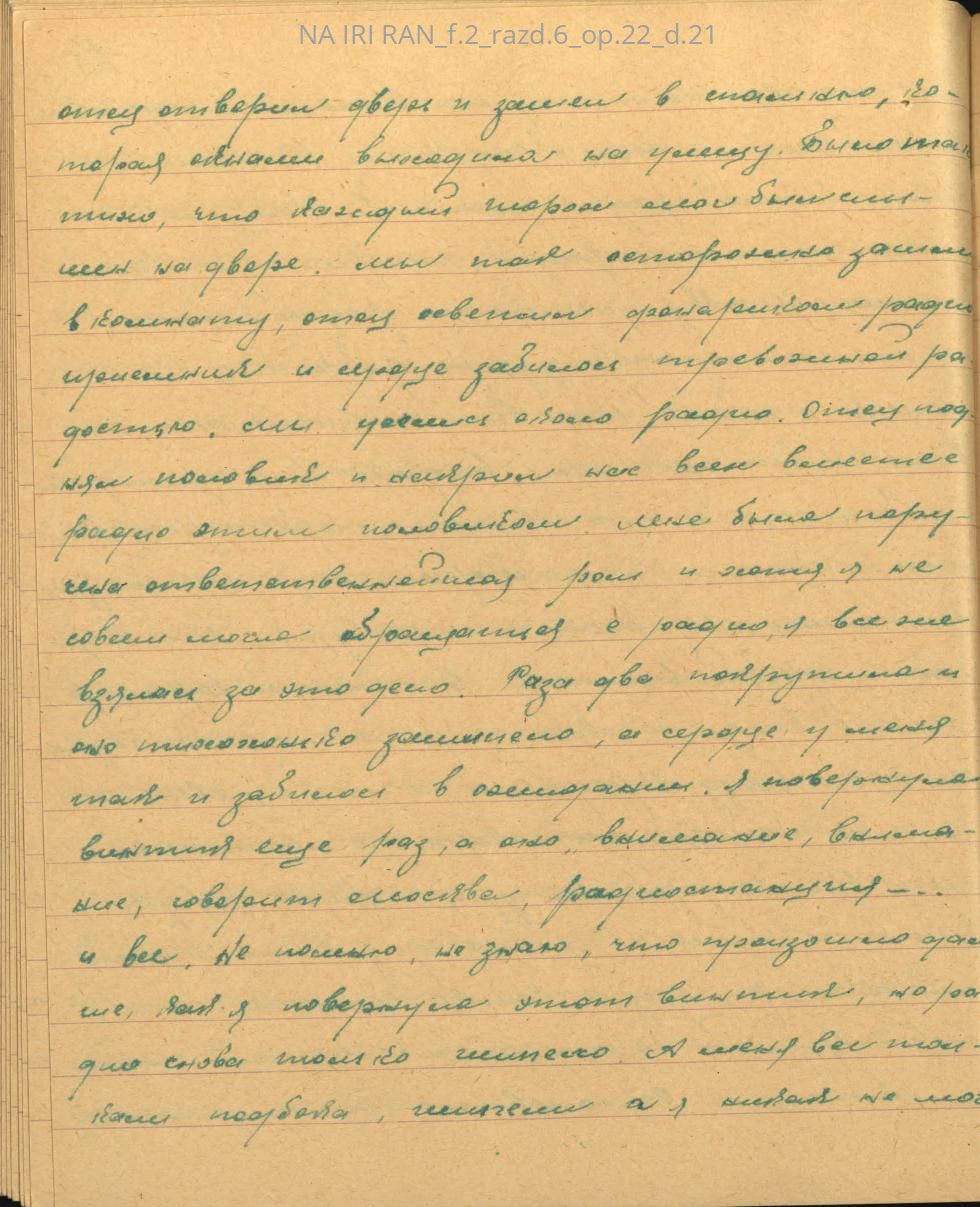 NA IRI RAN_f.2_razd.6_op.22_d.21
отец отверил дверь и зашел в спальню, ко-
торая окнами выходила на улицу. Было так
тихо, что каждый шорох мог быть слы-
шен на дворе. Мы так осторожно зашли
в комнату, отец осветил фонариком радио
приемник и сердце забилось тревожной ра
достью. Мы уселись около радио. Отец под
нял половик и накрыл нас всех вместе с
радио этим половиком. Мне была пору-
чена ответственнейшая роль и хотя я не
совсем могла обращаться с радио, я все же
взялась за это дело. Раза два покрутила и
оно тихохонько зашипело, а сердце у меня
так и забилось в ожидании. Я повернула
винтик еще раз, а оно „внимание, внима-
ние, говорит Москва, радиостанция –...
и все. Не помню, не знаю, что произошло даль
ше, как я повернула этот винтик, но ра
дио снова только шипело. А меня все тол-
кали под бока, шипели а я никак не мог